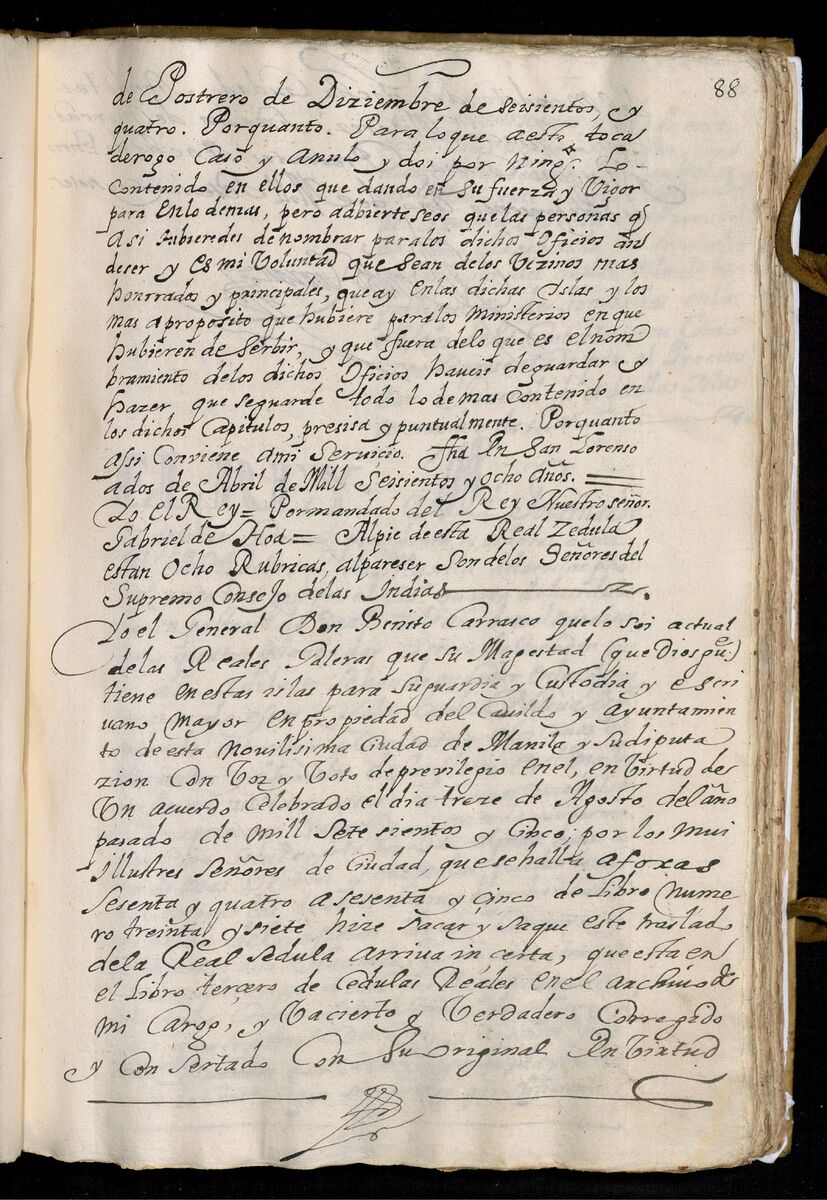 88
de Postrero de Diziembre de seisientos, y
quatro. Porquanto. Para loque aesto toca
derogo Caso y Anulo y doi por Ning.º Lo
Contenido en ellos que dando en su fuerza y Vigor
para Enlo demas, pero adbierte seos que las personas q
Asi tubieredes de nombrar para los dichos Oficios an
deser y es mi Voluntad que sean delos Vezinos mas
honrrados y principales, que ay en las dichas Islas y los
mas aproposito que hubiere para los Ministerios en que
hubieren de Serbir, y que fuera delo que es el nom
bramiento delos dichos Oficios haveis deguardar y
hazer que seguarde todo lo demas Contenido en
los dichos Capitulos, presisa y puntualmente. Porquanto
assi Conviene ami Servicio. fha En San Lorenso
ados de Abril de Mill Seisientos y ocho años.
Yo el Rey = Pormandado del Rey Nuestro señor.
Gabriel de Hoa = Alpie de esta Real Zedula
estan Ocho Rubricas, alpareser Son delos Señores del
Supremo Consejo delas Indias
Yo el General Don Benito Carrasco que lo soi actual
delas Reales Galeras que su Magestad (que Dios gue.)
tiene en estas islas para su guardia y Custodia y escri
vano Mayor en propiedad del Cavildo y ayuntamien
to de esta novilisima Ciudad de Manila y su diputa
zion Con Voz y Voto de previlegio en el, en Virtud de
Un acuerdo Celebrado el dia treze de Agosto del año
pasado de Mill Sete sientos y Cinco; por los Mui
Illustres Señores de Ciudad, que se halla afoxas
Sesenta y quatro a sesenta y cinco de Libro Nume
ro treinta y siete hize sacar y saque este traslado
dela Real Sedula arriva in certa, que esta en
el Libro tercero de Cedulas Reales en el archivo de
mi Cargo, y Va cierto y Verdadero Corregido
y Con sertado Con Su original En Virtud